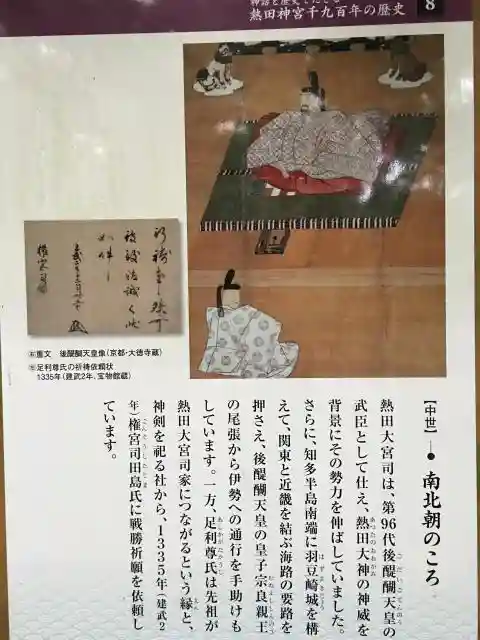 熱田神宮千九百年の歴史
8
㊨重文　後醍醐天皇像(京都・大徳寺蔵)
㊧足利尊氏の祈祷依頼状
1335年(建武2年、宝物館蔵)
【中世】―● 南北朝のころ
熱田大宮司は、第96代後醍醐天皇の
武臣として仕え、熱田大神の神威を
背景にその勢力を伸ばしていました。
さらに、知多半島南端に羽豆崎城を構
えて、関東と近畿を結ぶ海路の要路を
押さえ、後醍醐天皇の皇子宗良親王
の尾張から伊勢への通行を手助けも
しています。一方、足利尊氏は先祖が
熱田大宮司家につながるという縁と、
神剣を祀る社から、1335年(建武2
年)権宮司田島氏に戦勝祈願を依頼し
ています。